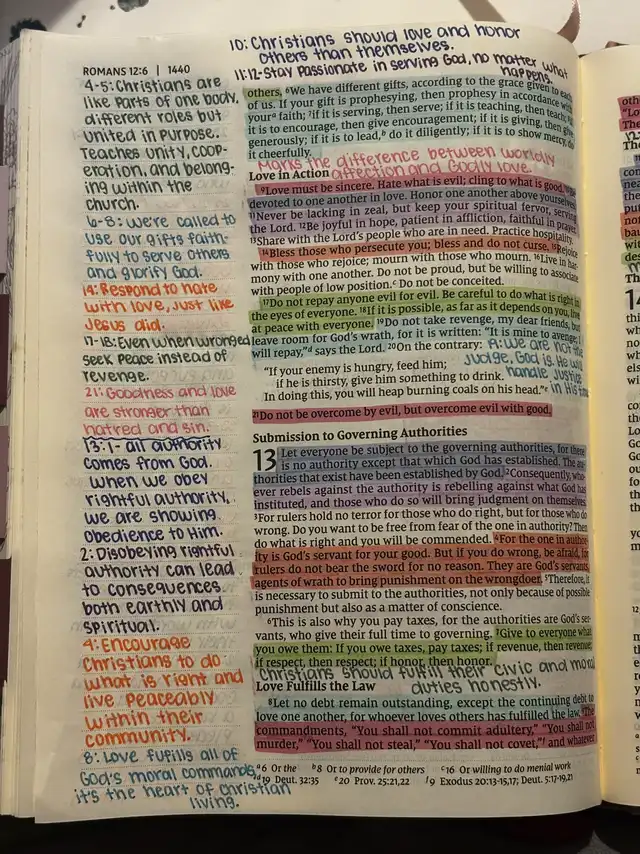 10: Christians should love and honor
others than themselves.
11:12-Stay passionate in serving God, no matter what
happens.
ROMANS 12:6 | 1440
4-5: Christians are
like parts of one body,
different roles but
united in purpose.
Teaches unity, coop-
eration, and belong-
ing within the
church.
6-8: we're called to
use our gifts faith-
fully to serve others
and glorify God.
14: Respond to hate
with love, just like
Jesus did.
17-18: Even when wronged
seek peace instead of
revenge.
21: Goodness and love
are stronger than
hatred and sin.
13:1- all authority
comes from God.
when we obey
rightful authority,
we are showing
obedience to Him.
2: Disobeying rightful
authority can lead
to consequences
both earthly and
spiritual.
4: Encourage
Christians to do
what is right and
live peaceably
within their
community.
8: Love fufills all of
God's moral commands,
it's the heart of christian
living.
others. 6We have different gifts, according to the grace given to each
of us. If your gift is prophesying, then prophesy in accordance with
your a faith; 7if it is serving, then serve; if it is teaching, then teach; 8if
it is to encourage, then give encouragement; if it is giving, then give
generously; if it is to lead, b do it diligently; if it is to show mercy, do
it cheerfully.
Marks the difference between worldly
affection and Godly love.
Love in Action
9Love must be sincere. Hate what is evil; cling to what is good. 10Be
devoted to one another in love. Honor one another above yourselves.
11Never be lacking in zeal, but keep your spiritual fervor, serving
the Lord. 12Be joyful in hope, patient in affliction, faithful in prayer.
13Share with the Lord's people who are in need. Practice hospitality.
14Bless those who persecute you; bless and do not curse. 15Rejoice
with those who rejoice; mourn with those who mourn. 16Live in har-
mony with one another. Do not be proud, but be willing to associate
with people of low position. c Do not be conceited.
17Do not repay anyone evil for evil. Be careful to do what is right in
the eyes of everyone. 18If it is possible, as far as it depends on you, live
at peace with everyone. 19Do not take revenge, my dear friends, but
leave room for God's wrath, for it is written: "It is mine to avenge; I
will repay," d says the Lord. 20On the contrary:
19: we are not the
judge. God is. He will
handle justice
in His time
"If your enemy is hungry, feed him;
if he is thirsty, give him something to drink.
In doing this, you will heap burning coals on his head." e
21Do not be overcome by evil, but overcome evil with good.
Submission to Governing Authorities
13 Let everyone be subject to the governing authorities, for there
is no authority except that which God has established. The au-
thorities that exist have been established by God. 2Consequently, who-
ever rebels against the authority is rebelling against what God has
instituted, and those who do so will bring judgment on themselves.
3For rulers hold no terror for those who do right, but for those who do
wrong. Do you want to be free from fear of the one in authority? Then
do what is right and you will be commended. 4For the one in author-
ity is God's servant for your good. But if you do wrong, be afraid, for
rulers do not bear the sword for no reason. They are God's servants,
agents of wrath to bring punishment on the wrongdoer. 5Therefore, it
is necessary to submit to the authorities, not only because of possible
punishment but also as a matter of conscience.
6This is also why you pay taxes, for the authorities are God's ser-
vants, who give their full time to governing. 7Give to everyone what
you owe them: If you owe taxes, pay taxes; if revenue, then revenue;
if respect, then respect; if honor, then honor.
Christians should fulfill their civic and moral
duties honestly.
Love Fulfills the Law
8Let no debt remain outstanding, except the continuing debt to
love one another, for whoever loves others has fulfilled the law. 9The
commandments, "You shall not commit adultery," "You shall not
murder," "You shall not steal," "You shall not covet," f and whatever
a 6 Or the b 8 Or to provide for others c 16 Or willing to do menial work
d 19 Deut. 32:35 e 20 Prov. 25:21,22 f 9 Exodus 20:13-15,17; Deut. 5:17-19,21